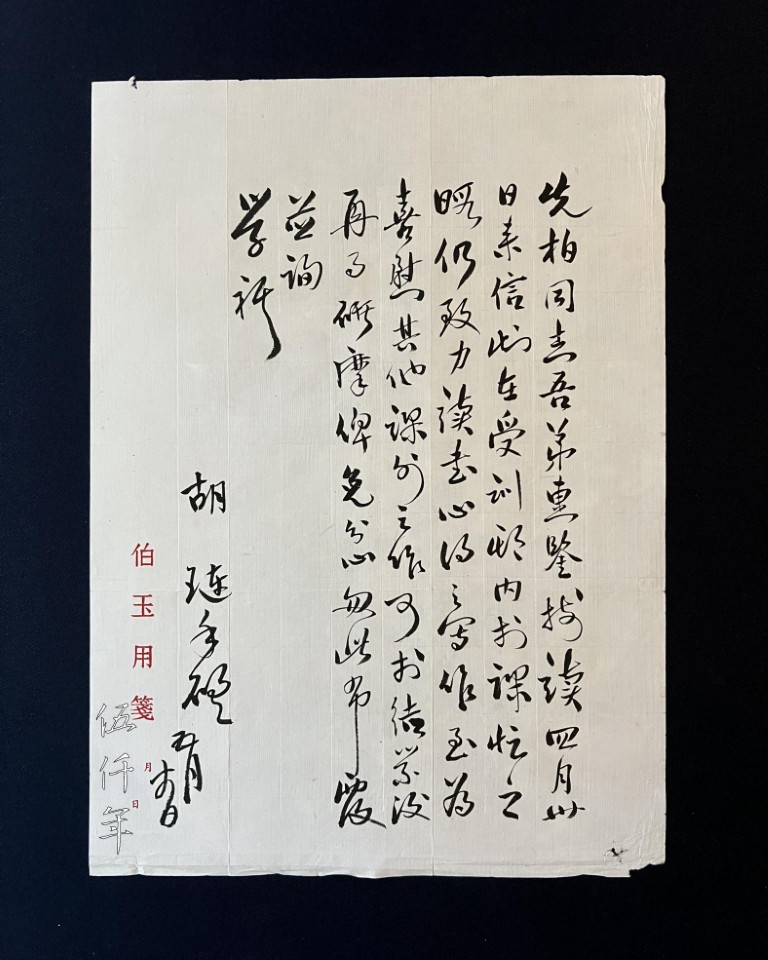 先柏同志吾弟惠鑒接讀四月卅
日來信在受訓期內於課忙之
暇仍致力讀書心得之寫作至為
喜慰其他課外之作可於結業後
再研摩俾免分心匆此布覆
並詢
学祺
胡璉手啟 五月日
伯玉用箋 月 日
伍仟年